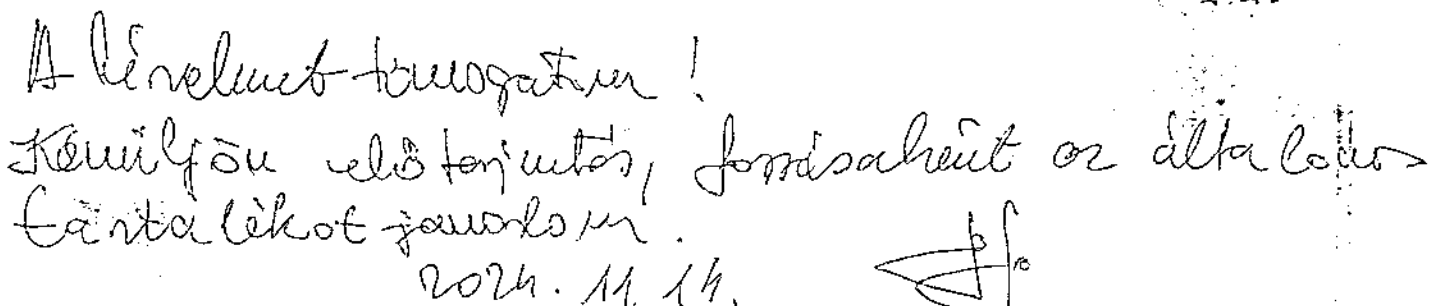 A kérelmet támogatom!
Készüljön előterjesztés, forrásaként az általános
tartalékot javaslom.
2024. 11. 14.